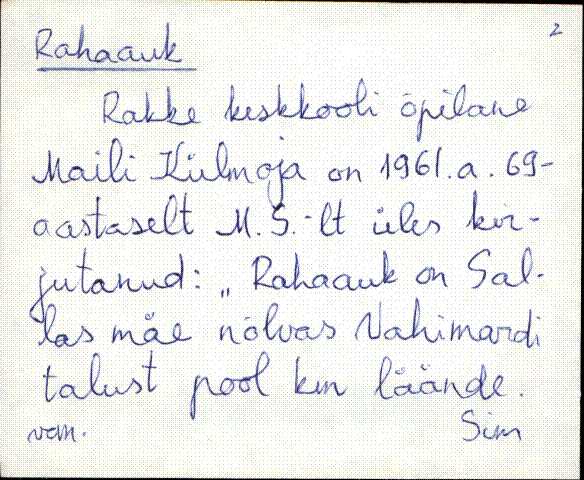 2
Rahaauk
Rakke keskkooli õpilane
Maili Külmoja on 1961.a. 69-
aastaselt M.S.-lt üles kir-
jutanud: „Rahaauk on Sal-
las mäe nõlvas Vahimardi
talust pool km läände.
vem. Sim